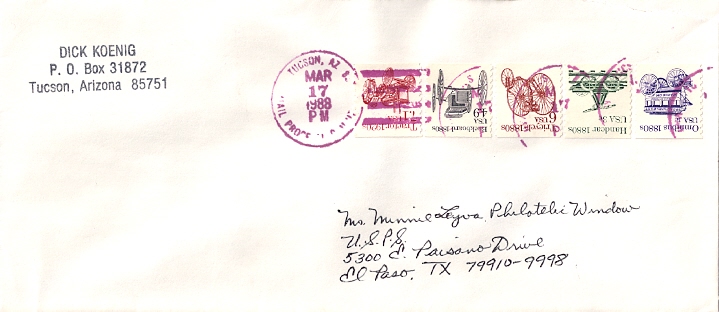 DICK KOENIG
P. O. Box 31872
Tucson, Arizona 85751
TUCSON, AZ
MAR
17
1988
PM
MAIL PROC
Buckboard 1880s
USA 4.9
Tricycle 1880s
6 USA
Handcar 1880s
USA 3
Omnibus 1880s
USA
Ms. Minnie Leyva, Philatelic Window
U.S.P.S.
5300 E. Paisano Drive
El Paso, TX 79910-9998